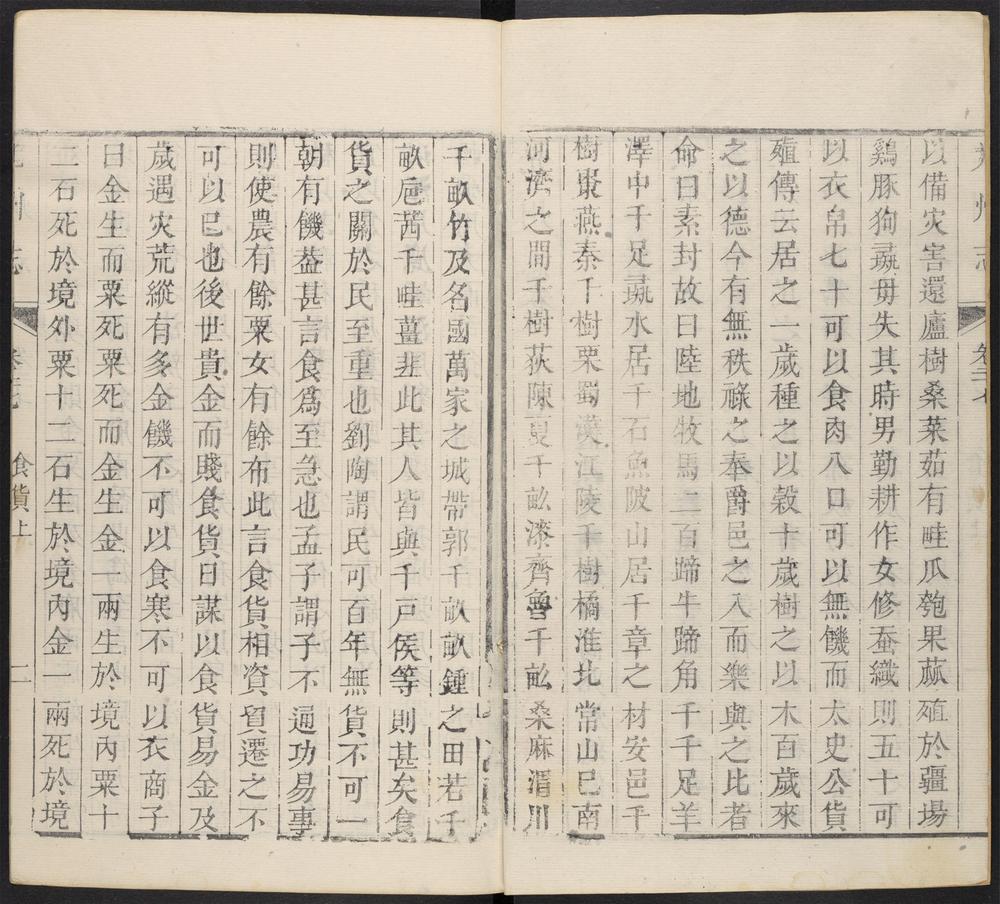 州志
卷二七
以備灾害還廬樹桑菜茹有畦瓜匏果蓏殖於疆場
鷄豚狗彘毋失其時男勤耕作女修蚕織則五十可
以衣帛七十可以食肉八口可以無饑而太史公貨
殖傳云居之一歲種之以穀十歲樹之以木百歲來
之以德今有無秩祿之奉爵邑之入而樂與之比者
命曰素封故曰陸地牧馬二百蹄牛蹄角千千足羊
澤中千足彘水居千石魚陂山居千章之材安邑千
樹棗燕秦千樹栗蜀漢江陵千樹橘淮北常山巳南
河濟之間千樹荻陳夏千畝漆齊魯千畝桑麻渭川
千畝竹及名國萬家之城帶郭千畝畝鍾之田若千
畝巵茜千畦薑韭此其人皆與千戸侯等則甚矣食
貨之關於民至重也劉陶謂民可百年無貨不可一
朝有饑葢甚言食爲至急也孟子謂子不通功易事
則使農有餘粟女有餘布此言食貨相資貿遷之不
可以巳也後世貴金而賤食貨日謀以食貨易金及
歲遇灾荒縱有多金饑不可以食寒不可以衣商子
曰金生而粟死粟死而金生金一兩生於境內粟十
二石死於境外粟十二石生於境內金一兩死於境
州志
食貨上